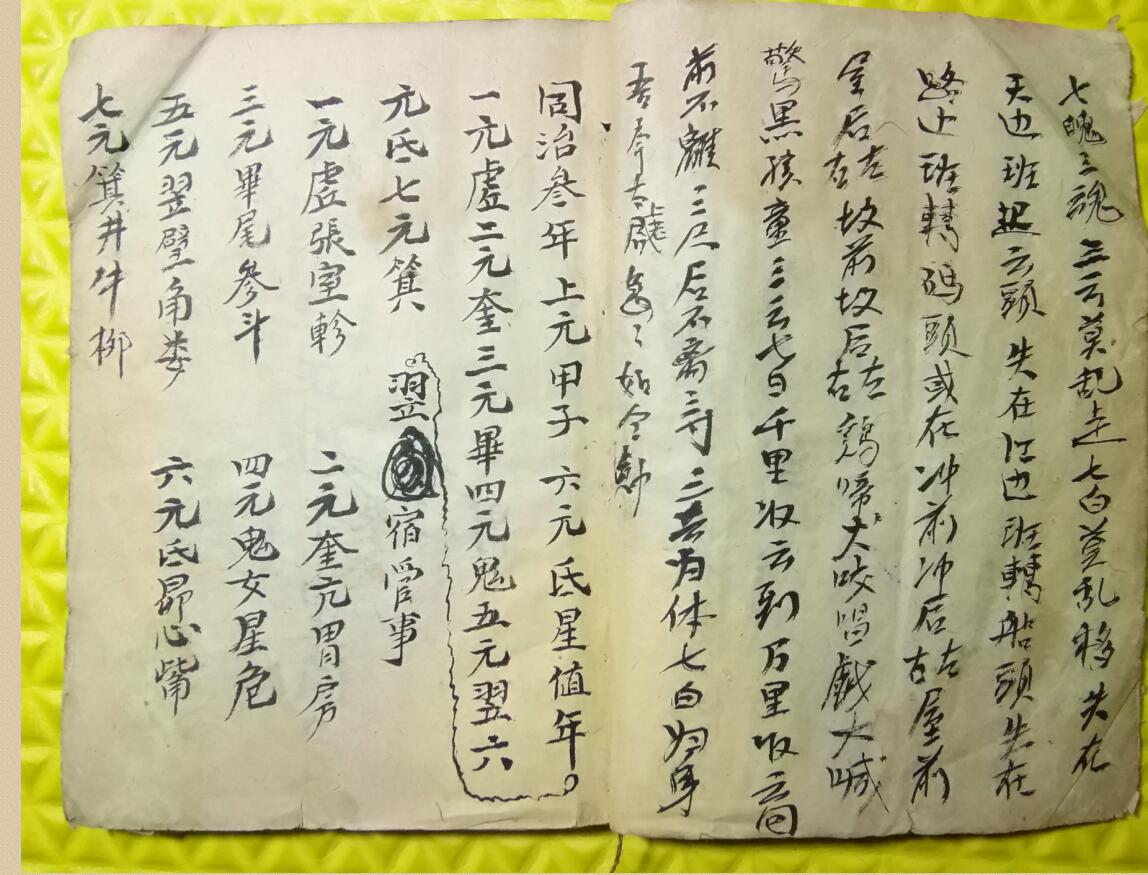 七魄三魂三云莫乱走七白莫乱移失在
天边班起云頭失在江边班轉船頭失在
路边班轉碼頭或在冲前冲后右左屋前
屋后右左坟前坟后右左鷄啼犬咬唱戯大喊
驚黑孩童三云七白千里收云到万里收云回
前不離三尺后不离三寸三云为体七白归身
吾奉太急〻如令勅
同治叁年上元甲子六元氐星值年
一元虚二元奎三元畢四元鬼五元翌六
元氐七元箕
翌宿管事
一元虚張室軫 二元奎亢胃房
三元畢尾參斗 四元鬼女星危
五元翌壁角娄 六元氐昴心觜
七元箕井牛柳